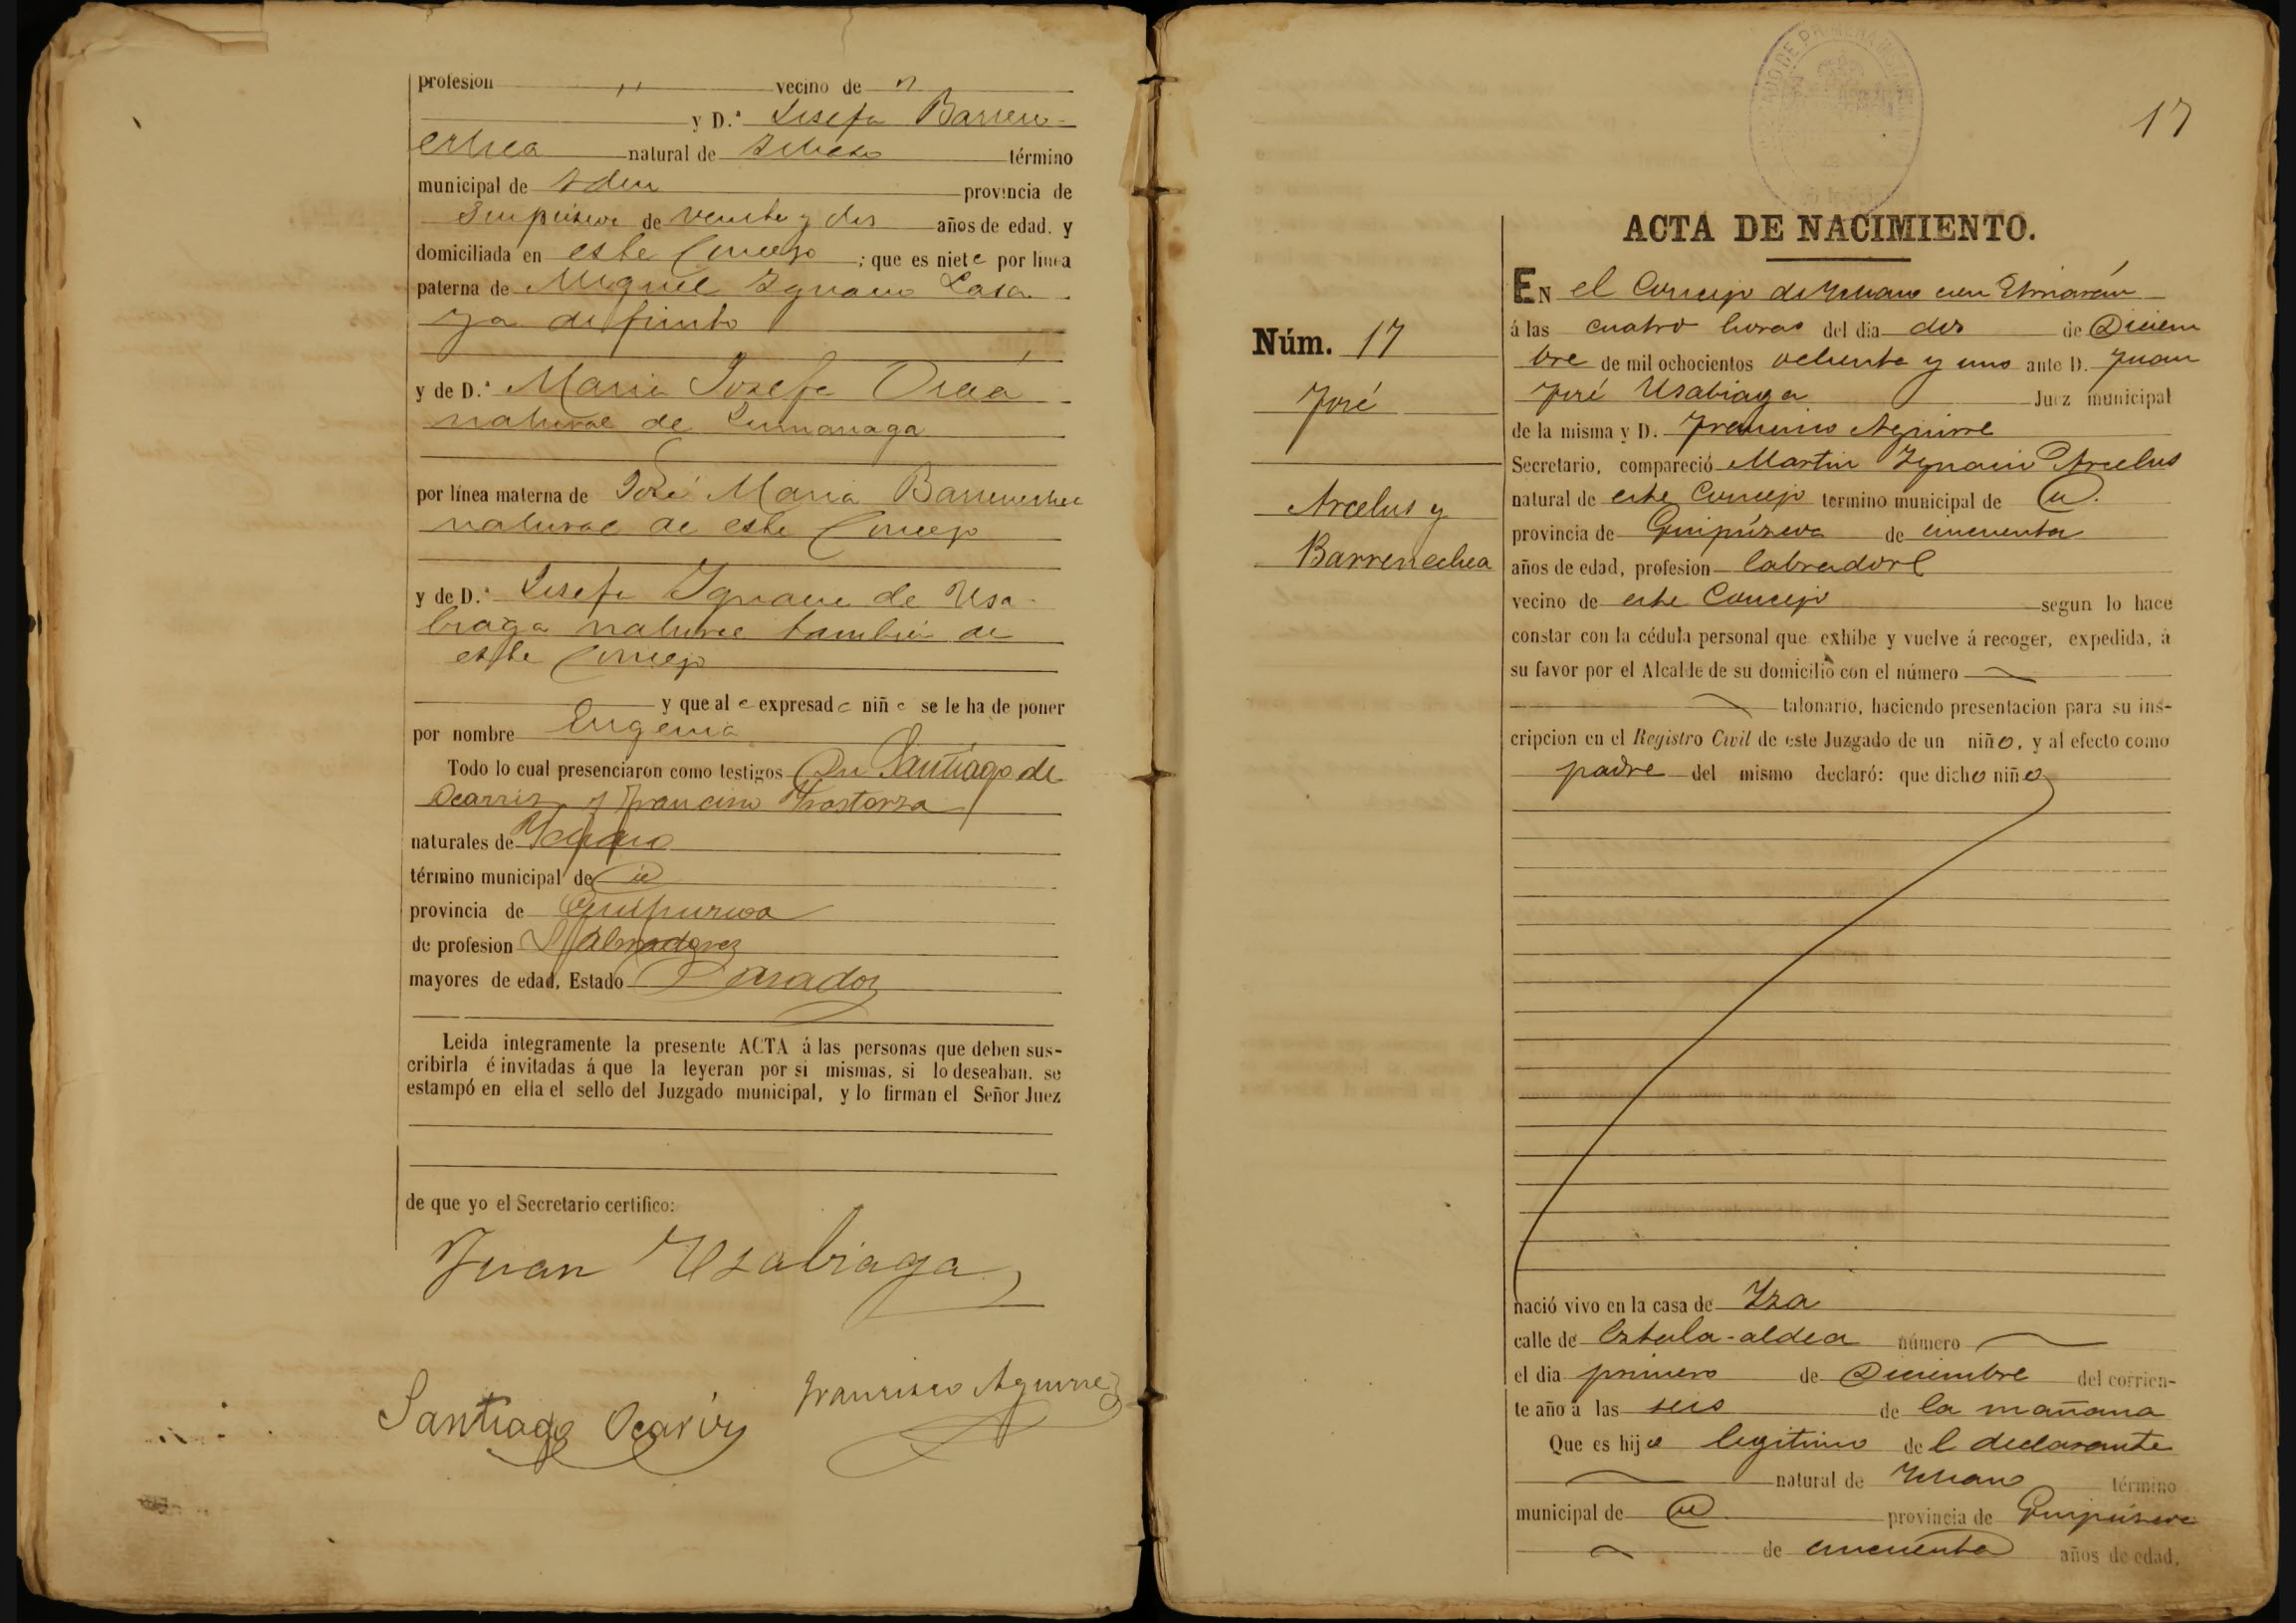 profesion " vecino de "
y D.ª Josefa Barren-
echea natural de término
municipal de Idem provincia de
Guipúzcoa de veinte y dos años de edad, y
domiciliada en este Concejo ; que es niet por linea
paterna de Miguel Ignacio Lasa
ya difunto
y de D.ª Maria Josefa
natural de
por línea materna de José Maria Barrenechea
natural de este Concejo
y de D.ª Josefa Ignacia de Usa-
biaga natural tambien de
este Concejo
y que al expresad niñ se le ha de poner
por nombre Eugenia
Todo lo cual presenciaron como testigos Dn Santiago de
Ocariz y Francisco
naturales de
término municipal de id
provincia de Guipuzcoa
de profesion Labradores
mayores de edad, Estado Casados
Leida integramente la presente ACTA á las personas que deben sus-
cribirla é invitadas á que la leyeran por si mismas, si lo deseaban, se
estampó en ella el sello del Juzgado municipal, y lo firman el Señor Juez
de que yo el Secretario certifico:
Juan Usabiaga
Francisco Aguirre
Santiago Ocariz
17
ACTA DE NACIMIENTO.
Núm. 17
José
Arcelus y
Barrenechea
EN el Concejo de
á las cuatro horas del dia dos de Diciem
bre de mil ochocientos ochenta y uno ante D. Juan
José Usabiaga Juez municipal
de la misma y D. Francisco Aguirre
Secretario, compareció Martin Ignacio Arcelus
natural de este Concejo termino municipal de id.
provincia de Guipúzcoa de cincuenta
años de edad, profesion labrador
vecino de este Concejo segun lo hace
constar con la cédula personal que exhibe y vuelve á recoger, expedida, á
su favor por el Alcalde de su domicilio con el número
talonario, haciendo presentacion para su ins-
cripcion en el Registro Civil de este Juzgado de un niño, y al efecto como
padre del mismo declaró: que dicho niño
nació vivo en la casa de Yza
calle de aldea número
el dia primero de Diciembre del corrien-
te año á las seis de la mañana
Que es hijo legitimo del declarante
natural de término
municipal de id provincia de Guipúzcoa
de cincuenta años de edad,